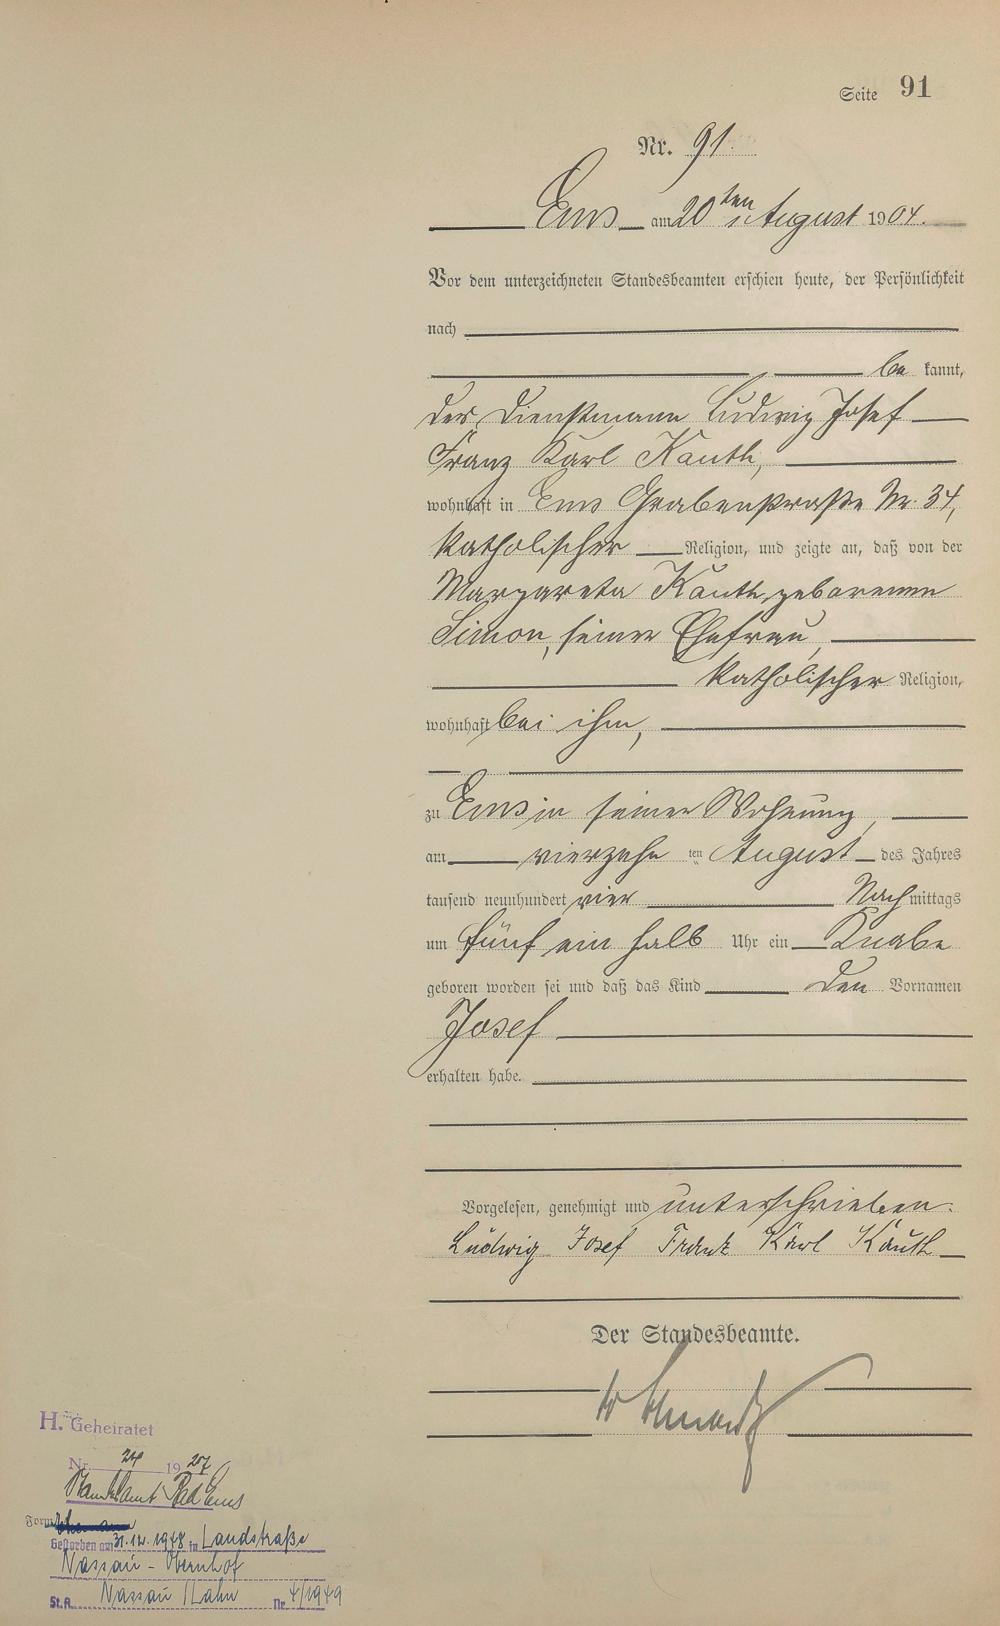 Seite 91
Nr. 91.
Ems am 20ten August 1904.
Vor dem unterzeichneten Standesbeamten erschien heute, der Persönlichkeit
nach
be kannt,
der Dienstmann Ludwig Josef
Franz Karl Kauth,
wohnhaft in Ems Grabenstraße Nr. 34,
katholischer Religion, und zeigte an, daß von der
Margareta Kauth, geborenen
Simon, seiner Ehefrau,
katholischer Religion,
wohnhaft bei ihm,
zu Ems in seiner Wohnung,
am vierzehn ten August des Jahres
tausend neunhundert vier Nach mittags
um fünf ein halb Uhr ein Knabe
geboren worden sei und daß das Kind den Vornamen
Josef
erhalten habe.
Vorgelesen, genehmigt und unterschrieben.
Ludwig Josef Franz Karl Kauth
Der Standesbeamte.
H. Geheiratet
Nr. 24 1927
Standesamt Bad Ems
Form
Gestorben am 31.12.1948 in Landstraße
Nassau - Obernhof
St.A. Nassau /Lahn Nr. 4/1949